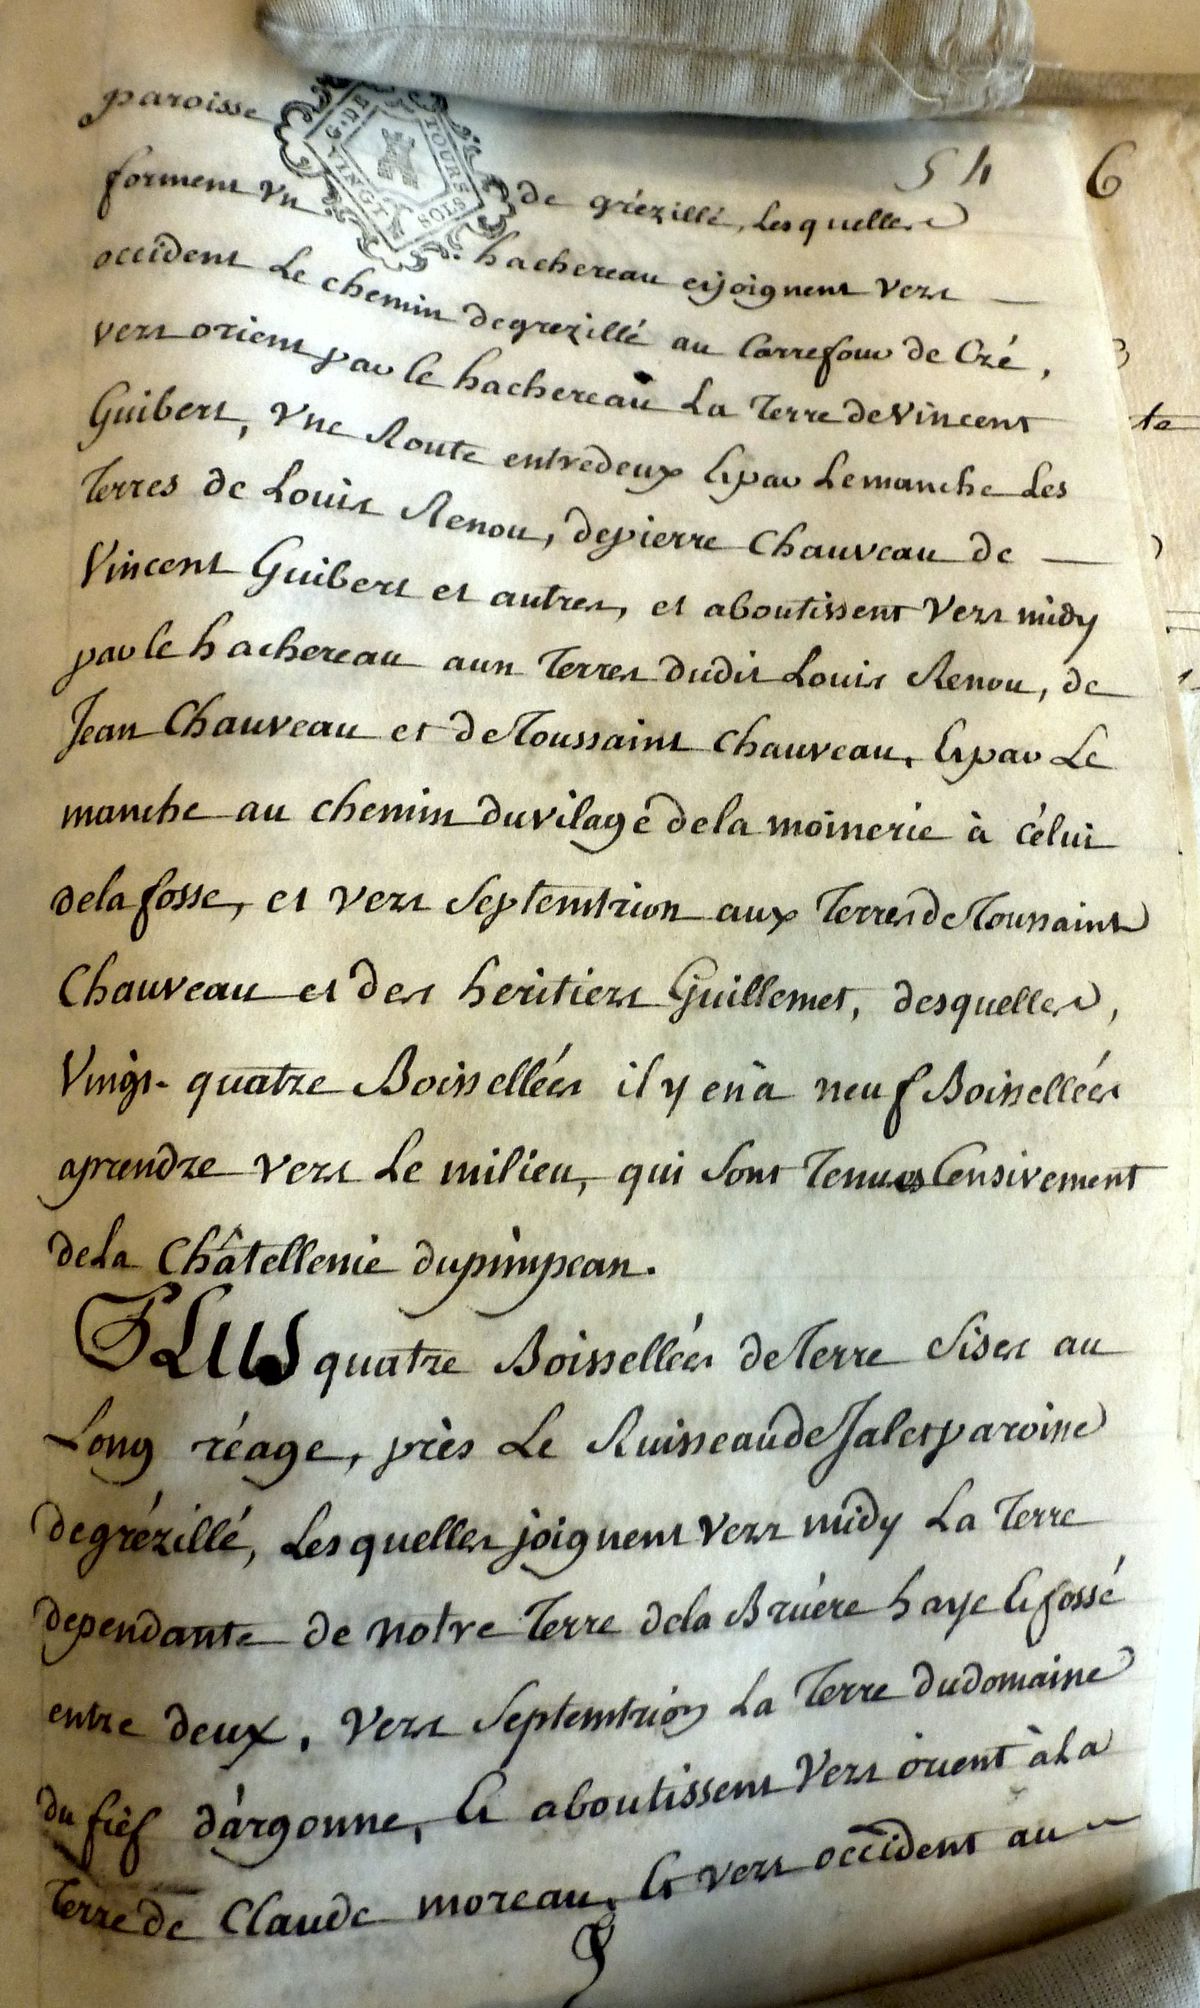 54 6
paroisse de grézillé, Lesquelles
forment vn hachereau etjoignent vers
occident Le chemin degrezillé au Carrefour de Cré,
vers orient par le hachereau La Terre deVincent
Guibert, vne Route entredeux Etpar Lemanche Les
Terres de Louis Renou, depierre Chauveau de
Vincent Guibert et autres, et aboutissent Vers midy
par le hachereau aux Terres dudit Louis Renou, de
Jean Chauveau et deToussaint Chauveau, Etpar Le
manche au chemin duvilage dela moinerie à célui
dela fosse, et vers Septemtrion aux TerresdeToussaint
Chauveau et des heritiers Guillemet, desquelles,
Vingt-quatre Boissellées il y en à neuf Boissellées
aprendre vers Le milieu, qui Sont Tenues Censivement
deLa Châtellenie dupimpean.
PLUS quatre Boissellées deTerre Sises au
Long réage, près Le RuisseaudeJaletparoisse
degrézillé, Lesquelles joignent vers midy La Terre
dependante de notre Terre dela Bruére haye Et fossé
entre deux, Vers Septemtrion La Terre dudomaine
du fief d'argonne, Et aboutissent Vers orient à La
Terre de Claude moreau, Et vers occident au
G. DE TOURS
VINGT SOLS
te